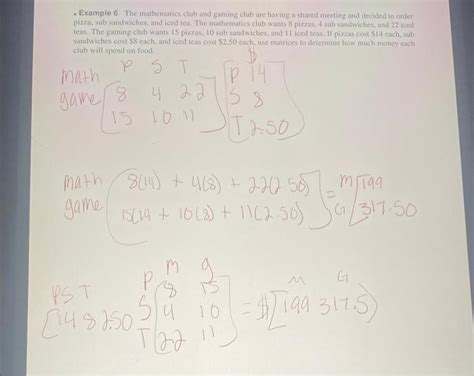 • Example 6 The mathematics club and gaming club are having a shared meeting and decided to order
pizza, sub sandwiches, and iced tea. The mathematics club wants 8 pizzas, 4 sub sandwiches, and 22 iced
teas. The gaming club wants 15 pizzas, 10 sub sandwiches, and 11 iced teas. If pizzas cost $14 each, sub
sandwiches cost $8 each, and iced teas cost $2.50 each, use matrices to determine how much money each
club will spend on food.
P S T $
math [8 4 22] [P 14
game [15 10 11] S 8
T 2.50]
math [8(14) + 4(8) + 22(2.50)] = M [199
game [15(14 + 10(8) + 11(2.50)] G [317.50
m g
P [8 15]
P S T
[14 8 2.50] S [4 10] = $ [199 317.5]
M G
T [22 11]